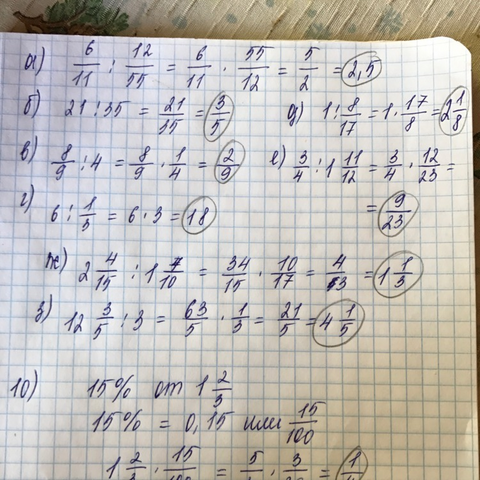 а) 6/11 : 12/55 = 6/11 · 55/12 = 5/2 = 2,5
б) 21 : 35 = 21/35 = 3/5
д) 1 : 8/17 = 1 · 17/8 = 2 1/8
в) 8/9 : 4 = 8/9 · 1/4 = 2/9
е) 3/4 : 1 11/12 = 3/4 · 12/23 =
= 9/23
г) 6 : 1/3 = 6 · 3 = 18
ж) 2 4/15 : 1 7/10 = 34/15 · 10/17 = 4/3 = 1 1/3
з) 12 3/5 : 3 = 63/5 · 1/3 = 21/5 = 4 1/5
10) 15% от 1 2/3
15% = 0,15 или 15/100
1 2/3 · 15/100 = 5/3 · 3/20 =